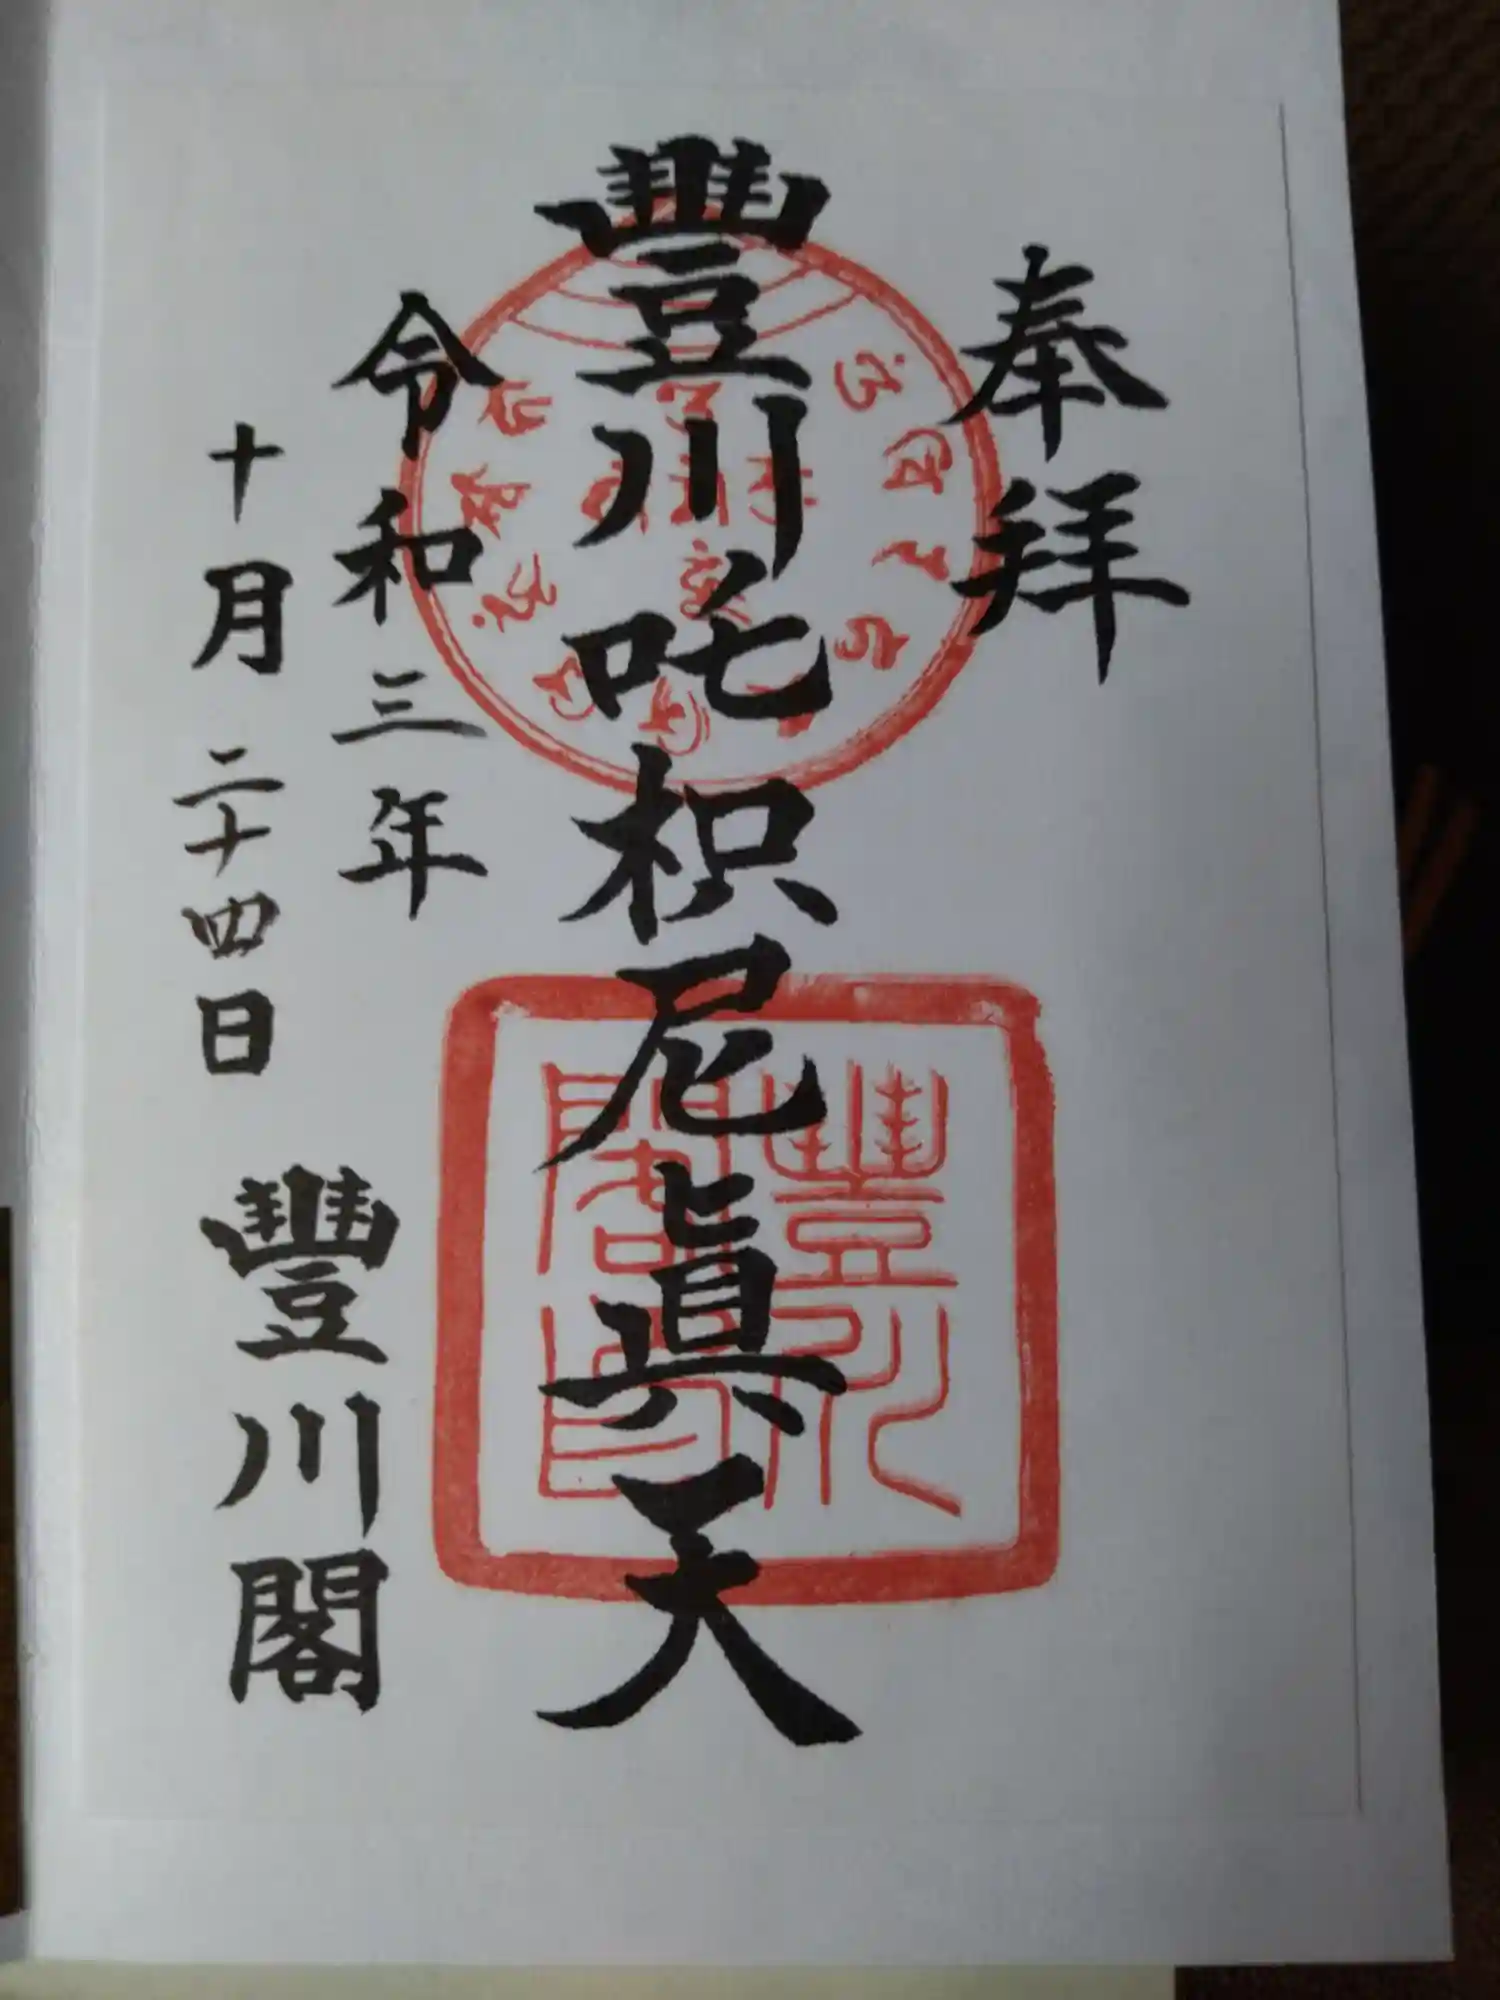 奉拜
豐川吒枳尼眞天
令和三年
十月二十四日
豐川閣
豐川
閣印